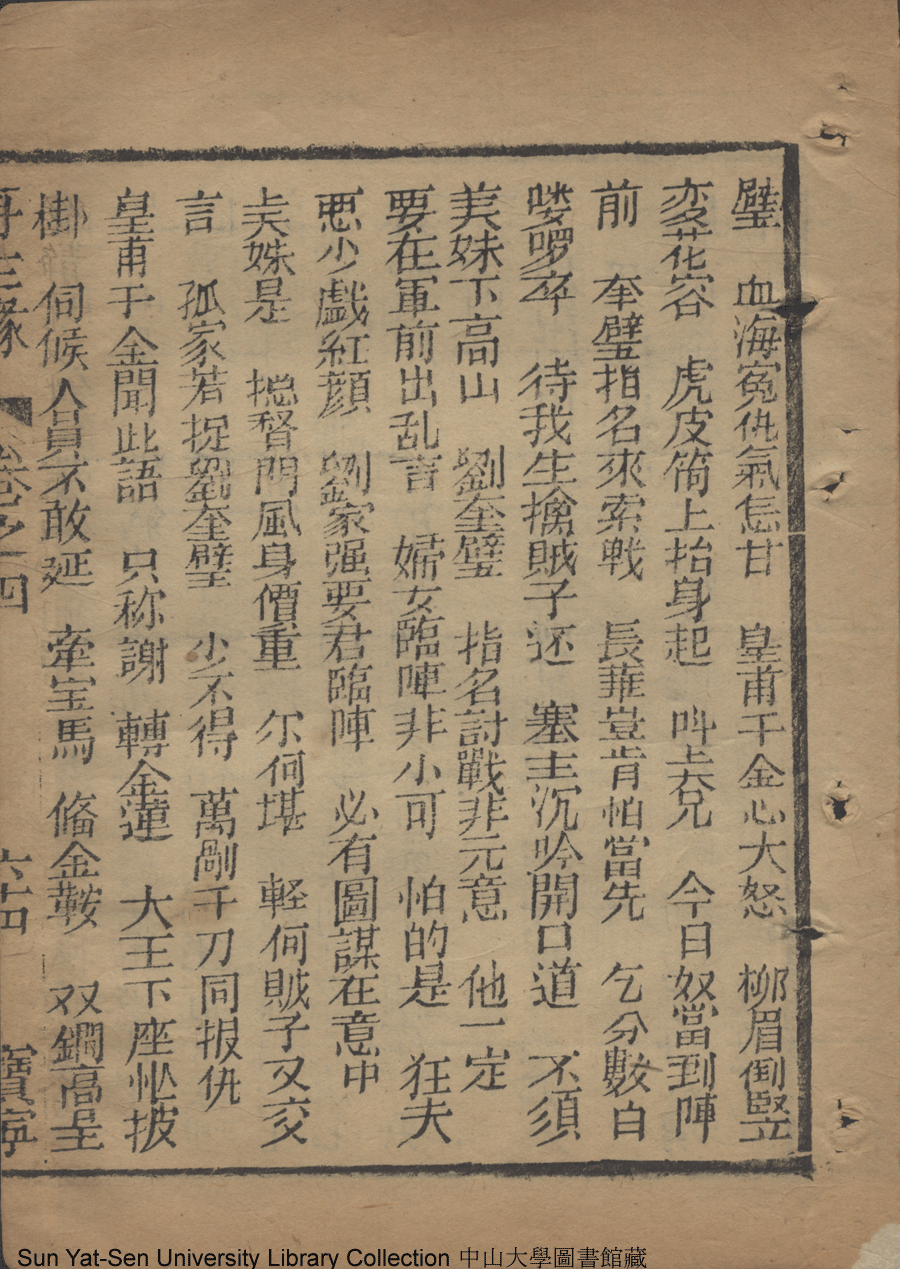 璧　血海冤仇氣怎甘　皇甫千金心大怒　柳眉倒竪
变花容　虎皮筒上抬身起　呌尖兄　今日奴當到陣
前　奎璧指名來索戦　長華豈肯怕當先　乞分數百
喽啰卒　待我生擒賊子还　塞主沉吟開口道　不須
美妹下高山　劉奎璧　指名討戰非元意　他一定
要在軍前出乱言　婦女臨陣非小可　怕的是　狂夫
恶少戲紅顏　劉家强要君臨陣　必有圖謀在意中
美妹是　捴督門風身價重　尔何堪　軽何賊子又交
言　孤家若捉劉奎璧　少不得　萬剮千刀同报仇
皇甫千金聞此語　只称謝　轉金蓮　大王下座忙披
掛　伺候人員不敢延　牽宝馬　俻金鞍　双鐗高呈
再生緣　卷之四　六十四　寶寧
Sun Yat-Sen University Library Collection 中山大學圖書館藏